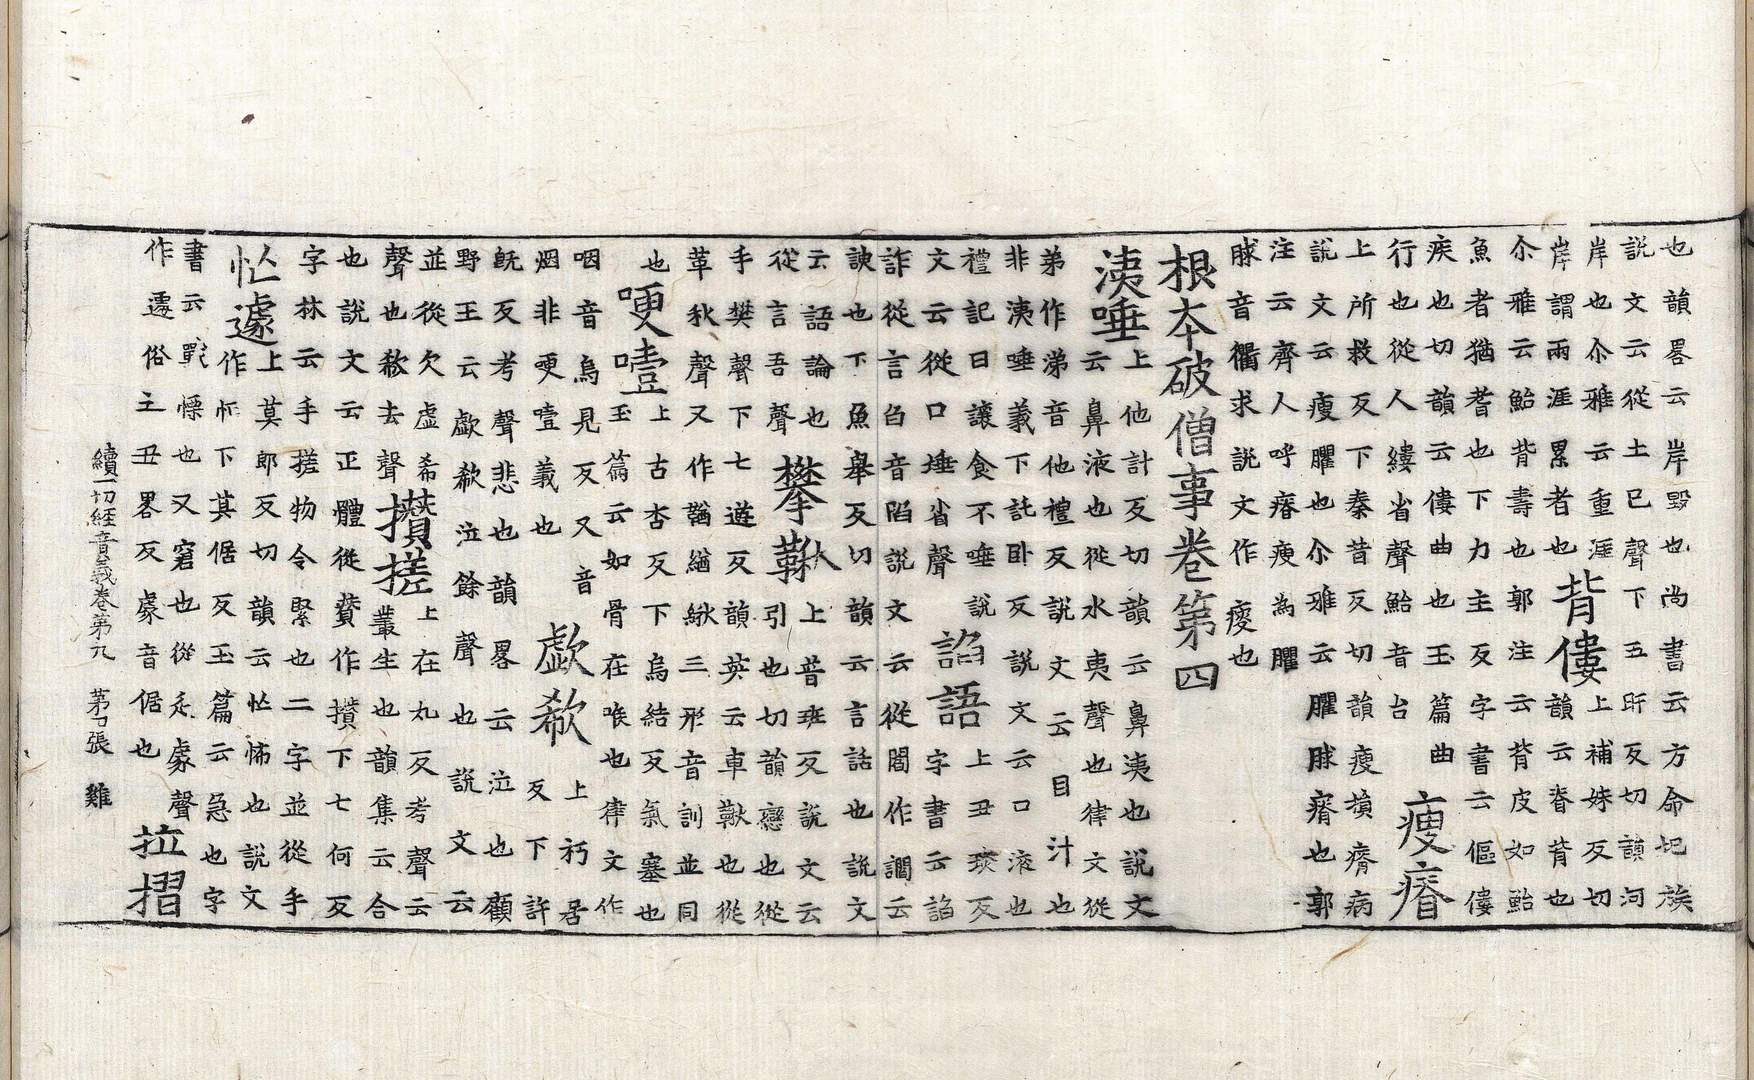 也韻畧云岸毀也尚書云方命圮族
説文云從土巳聲下五旰反切韻河
岸也尒雅云重涯
岸謂兩涯累者也
背僂
上補妹反切
韻云脊背也
尒雅云鮐背壽也郭注云背皮如鮐
魚者猶耆也下力主反字書云傴僂
疾也切韻云僂曲也玉篇曲
行也從人縷省聲鮐音台
瘦瘠
上所救反下秦昔反切韻瘦損瘠病
説文云瘦臞也尒雅云臞脙瘠也郭
注云齊人呼瘠瘦為臞
脙音衢求説文作㾊也
根本破僧事卷第四
洟唾
上他計反切韻云鼻洟也説文
云鼻液也從水夷聲也律文從
弟作涕音他禮反説文云目汁也
非洟唾義下託卧反説文云口液也
禮記曰讓食不唾説
文云從口埵省聲
諂語
上丑琰反
字書云諂
詐從言臽音陷説文云從閻作讇云
諛也下魚舉反切韻云言話也説文
云語論也
從言吾聲
攀鞦
上普班反説文云
引也切韻戀也從
手樊聲下七遊反韻英云車鞦也從
革秋聲又作鞧緧緅三形音訓並同
也
哽噎
上古杏反下烏結反氣塞也
玉篇云如骨在喉也律文作
咽音烏見反又音
烟非哽噎義也
歔欷
上朽居
反下許
旣反考聲悲也韻畧云泣也顧
野王云歔欷泣餘聲也説文云
並從欠虛希
聲也欷去聲
攢搓
上在丸反考聲云
叢生也韻集云合
也説文云正體從贊作攢下七何反
字林云手搓物令緊也二字並從手
忙遽
上莫郎反切韻云忙怖也説文
作㤺下其倨反玉篇云急也字
書云戰慄也又窘也從辵豦聲
作遽俗主丑畧反豦音倨也
拉摺
續一切經音義卷第九 第二張 雞